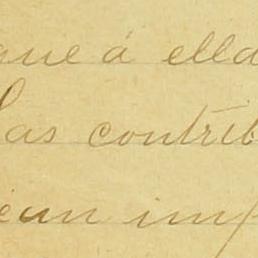 que á ella
Las contrib
ean imp